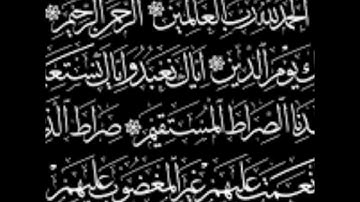 الحمد لله رب العالمين ❁ الرحمن الرحيم ❁
ك يوم الدين ❁ إياك نعبد وإياك نستعي
دنا الصراط المستقيم ❁ صراط الذ
نعمت عليهم غير المغضوب عليهم